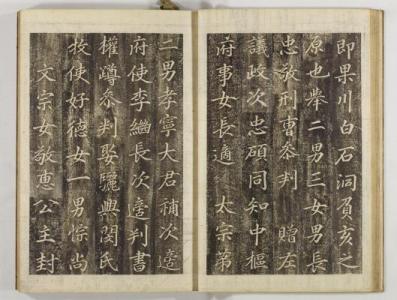 即果川白石洞負亥之
原也舉二男三女男長
忠敬刑曹叅判　贈左
議政次忠碩同知中樞
府事女長適　太宗第
二男孝寧大君補次適
府使李繼長次適判書
權蹲叅判娶驪興閔氏
牧使好德女一男悰尚
文宗女敬惠公主封